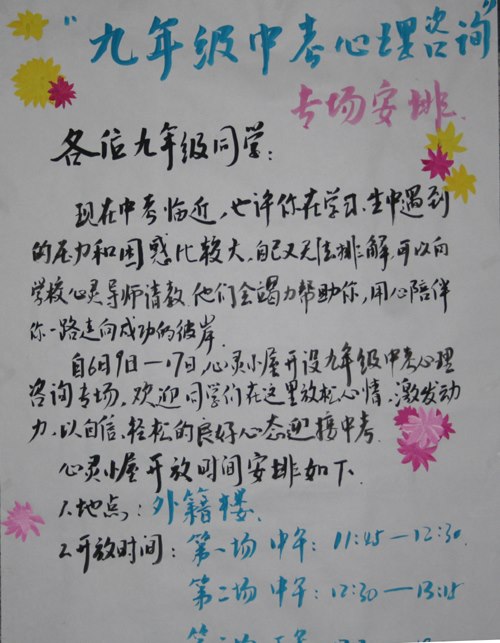 "九年级中考心理咨询"
专场安排.
各位九年级同学:
现在中考临近,也许你在学习、生中遇到
的压力和困惑比较大,自己又无法排解,可以向
学校心灵导师请教,他们会竭力帮助你,用心陪伴
你一路走向成功的彼岸.
自6月9日—17日,心灵小屋开设九年级中考心理
咨询专场,欢迎同学们在这里放松心情,激发动
力,以自信、轻松的良好心态迎接中考.
心灵小屋开放时间安排如下.
1.地点:外籍楼.
2.开放时间:第一场 中午:11:45—12:30.
第二场 中午:12:30—13:15